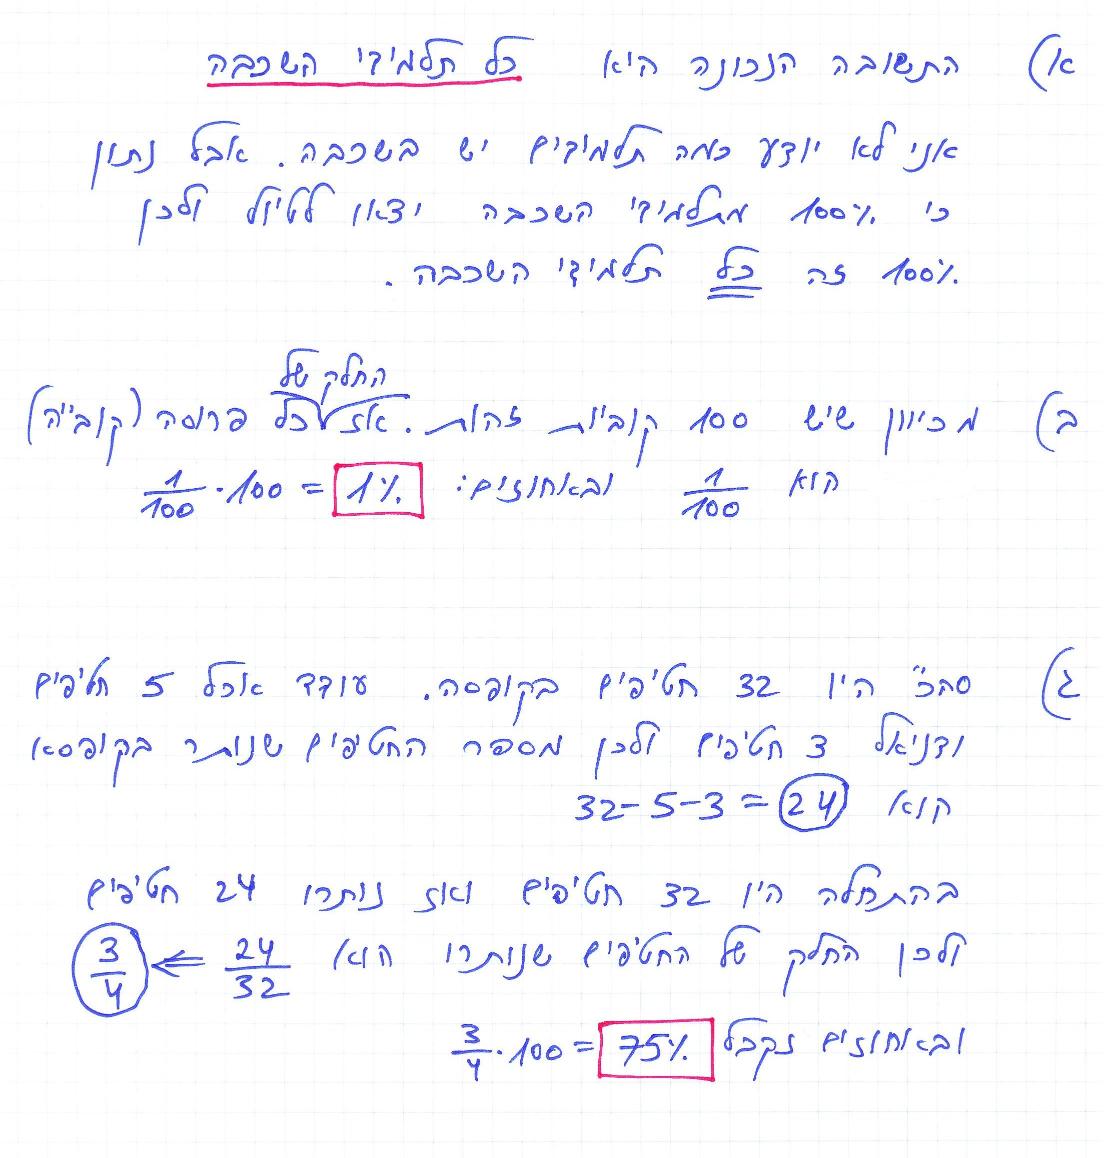 א) התשובה הנכונה היא כל תלמידי השכבה
אני לא יודע כמה תלמידים יש בשכבה. אבל נתון
כי 100% מתלמידי השכבה יצאו לטיול ולכן
100% זה כל תלמידי השכבה.
החלק של
ב) מכיוון שיש 100 קוביות זהות. אז כל פרוסה (קובייה)
הוא 1/100 ובאחוזים: 1/100 · 100 = 1%
ג) סה"כ היו 32 חטיפים בקופסה. עודד אוכל 5 חטיפים
ודניאל 3 חטיפים ולכן מספר החטיפים שנותר בקופסא
הוא 32-5-3=24
בהתחלה היו 32 חטיפים ואז נותרו 24 חטיפים
ולכן החלק של החטיפים שנותרו הוא 24/32 ⇐ 3/4
ובאחוזים נקבל 3/4 · 100 = 75%